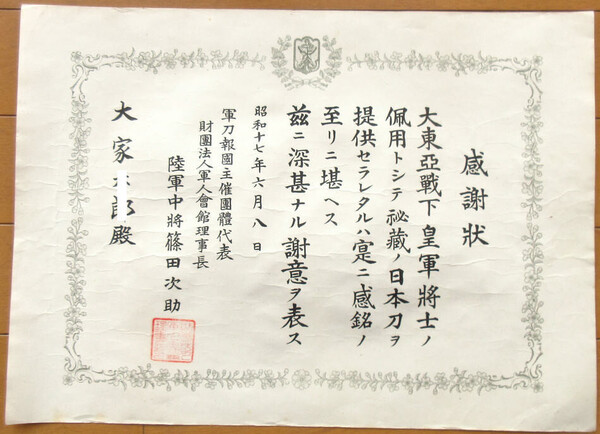 感謝狀
大東亞戰下皇軍將士ノ
佩用トシテ祕藏ノ日本刀ヲ
提供セラレタルハ寔ニ感銘ノ
至リニ堪ヘス
玆ニ深甚ナル謝意ヲ表ス
昭和十七年六月八日
軍刀報國主催團體代表
財團法人軍人會館理事長
陸軍中將篠田次助
大家 郎殿